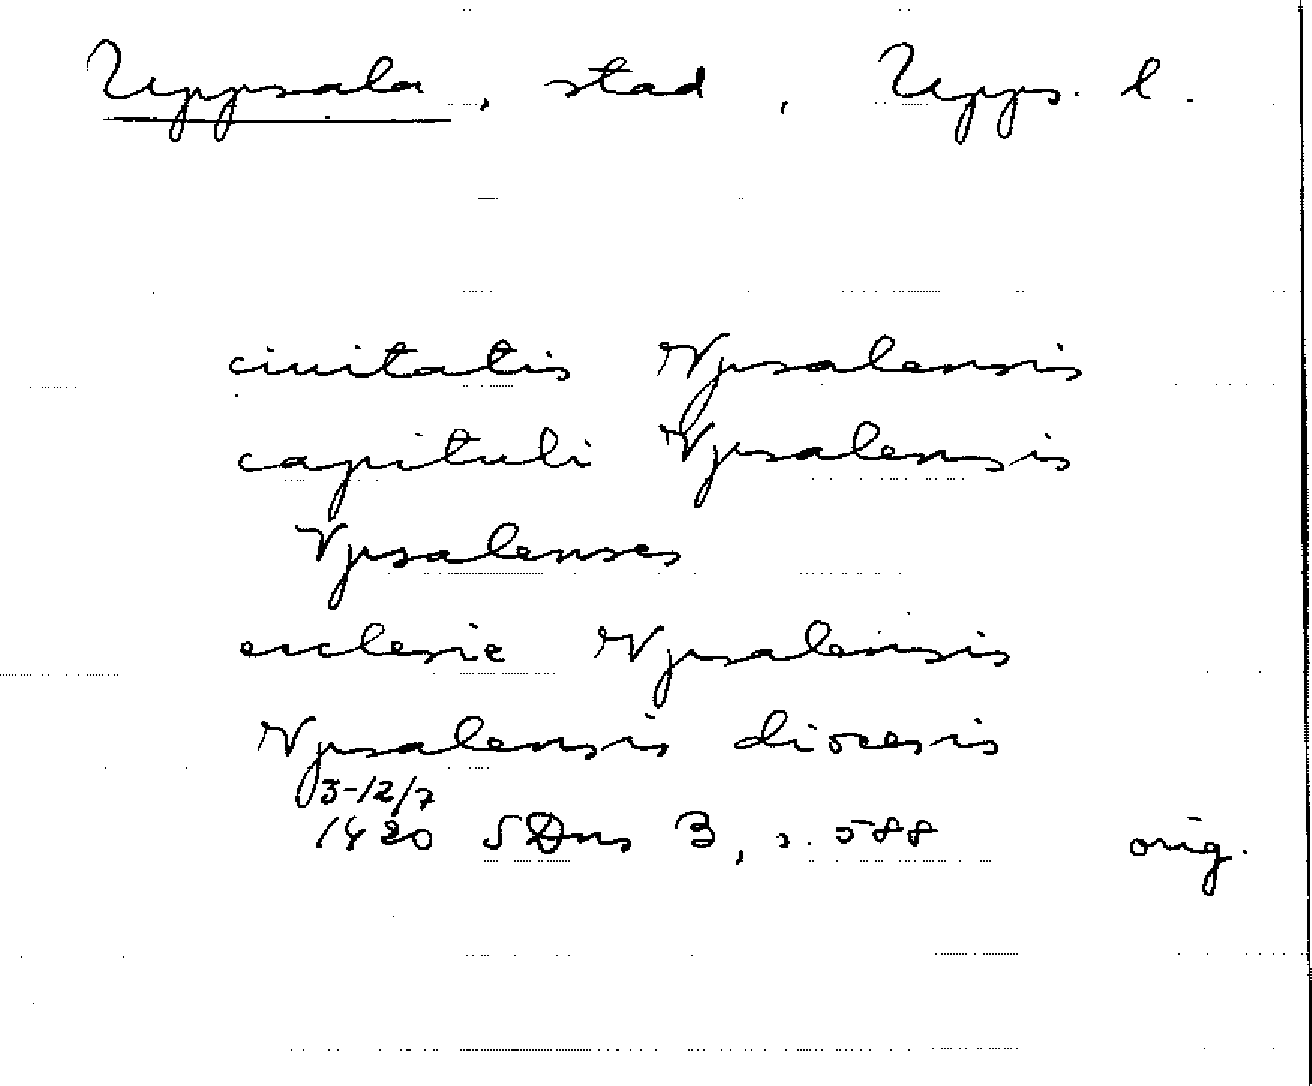 Uppsala, stad, Upps. l.
ciuitatis Vpsalensis
capituli Vpsalensis
Vpsalenses
ecclesie Vpsalensis
Vpsalensis diocesis
3-12/7
1420 SDns 3, s. 588 orig.